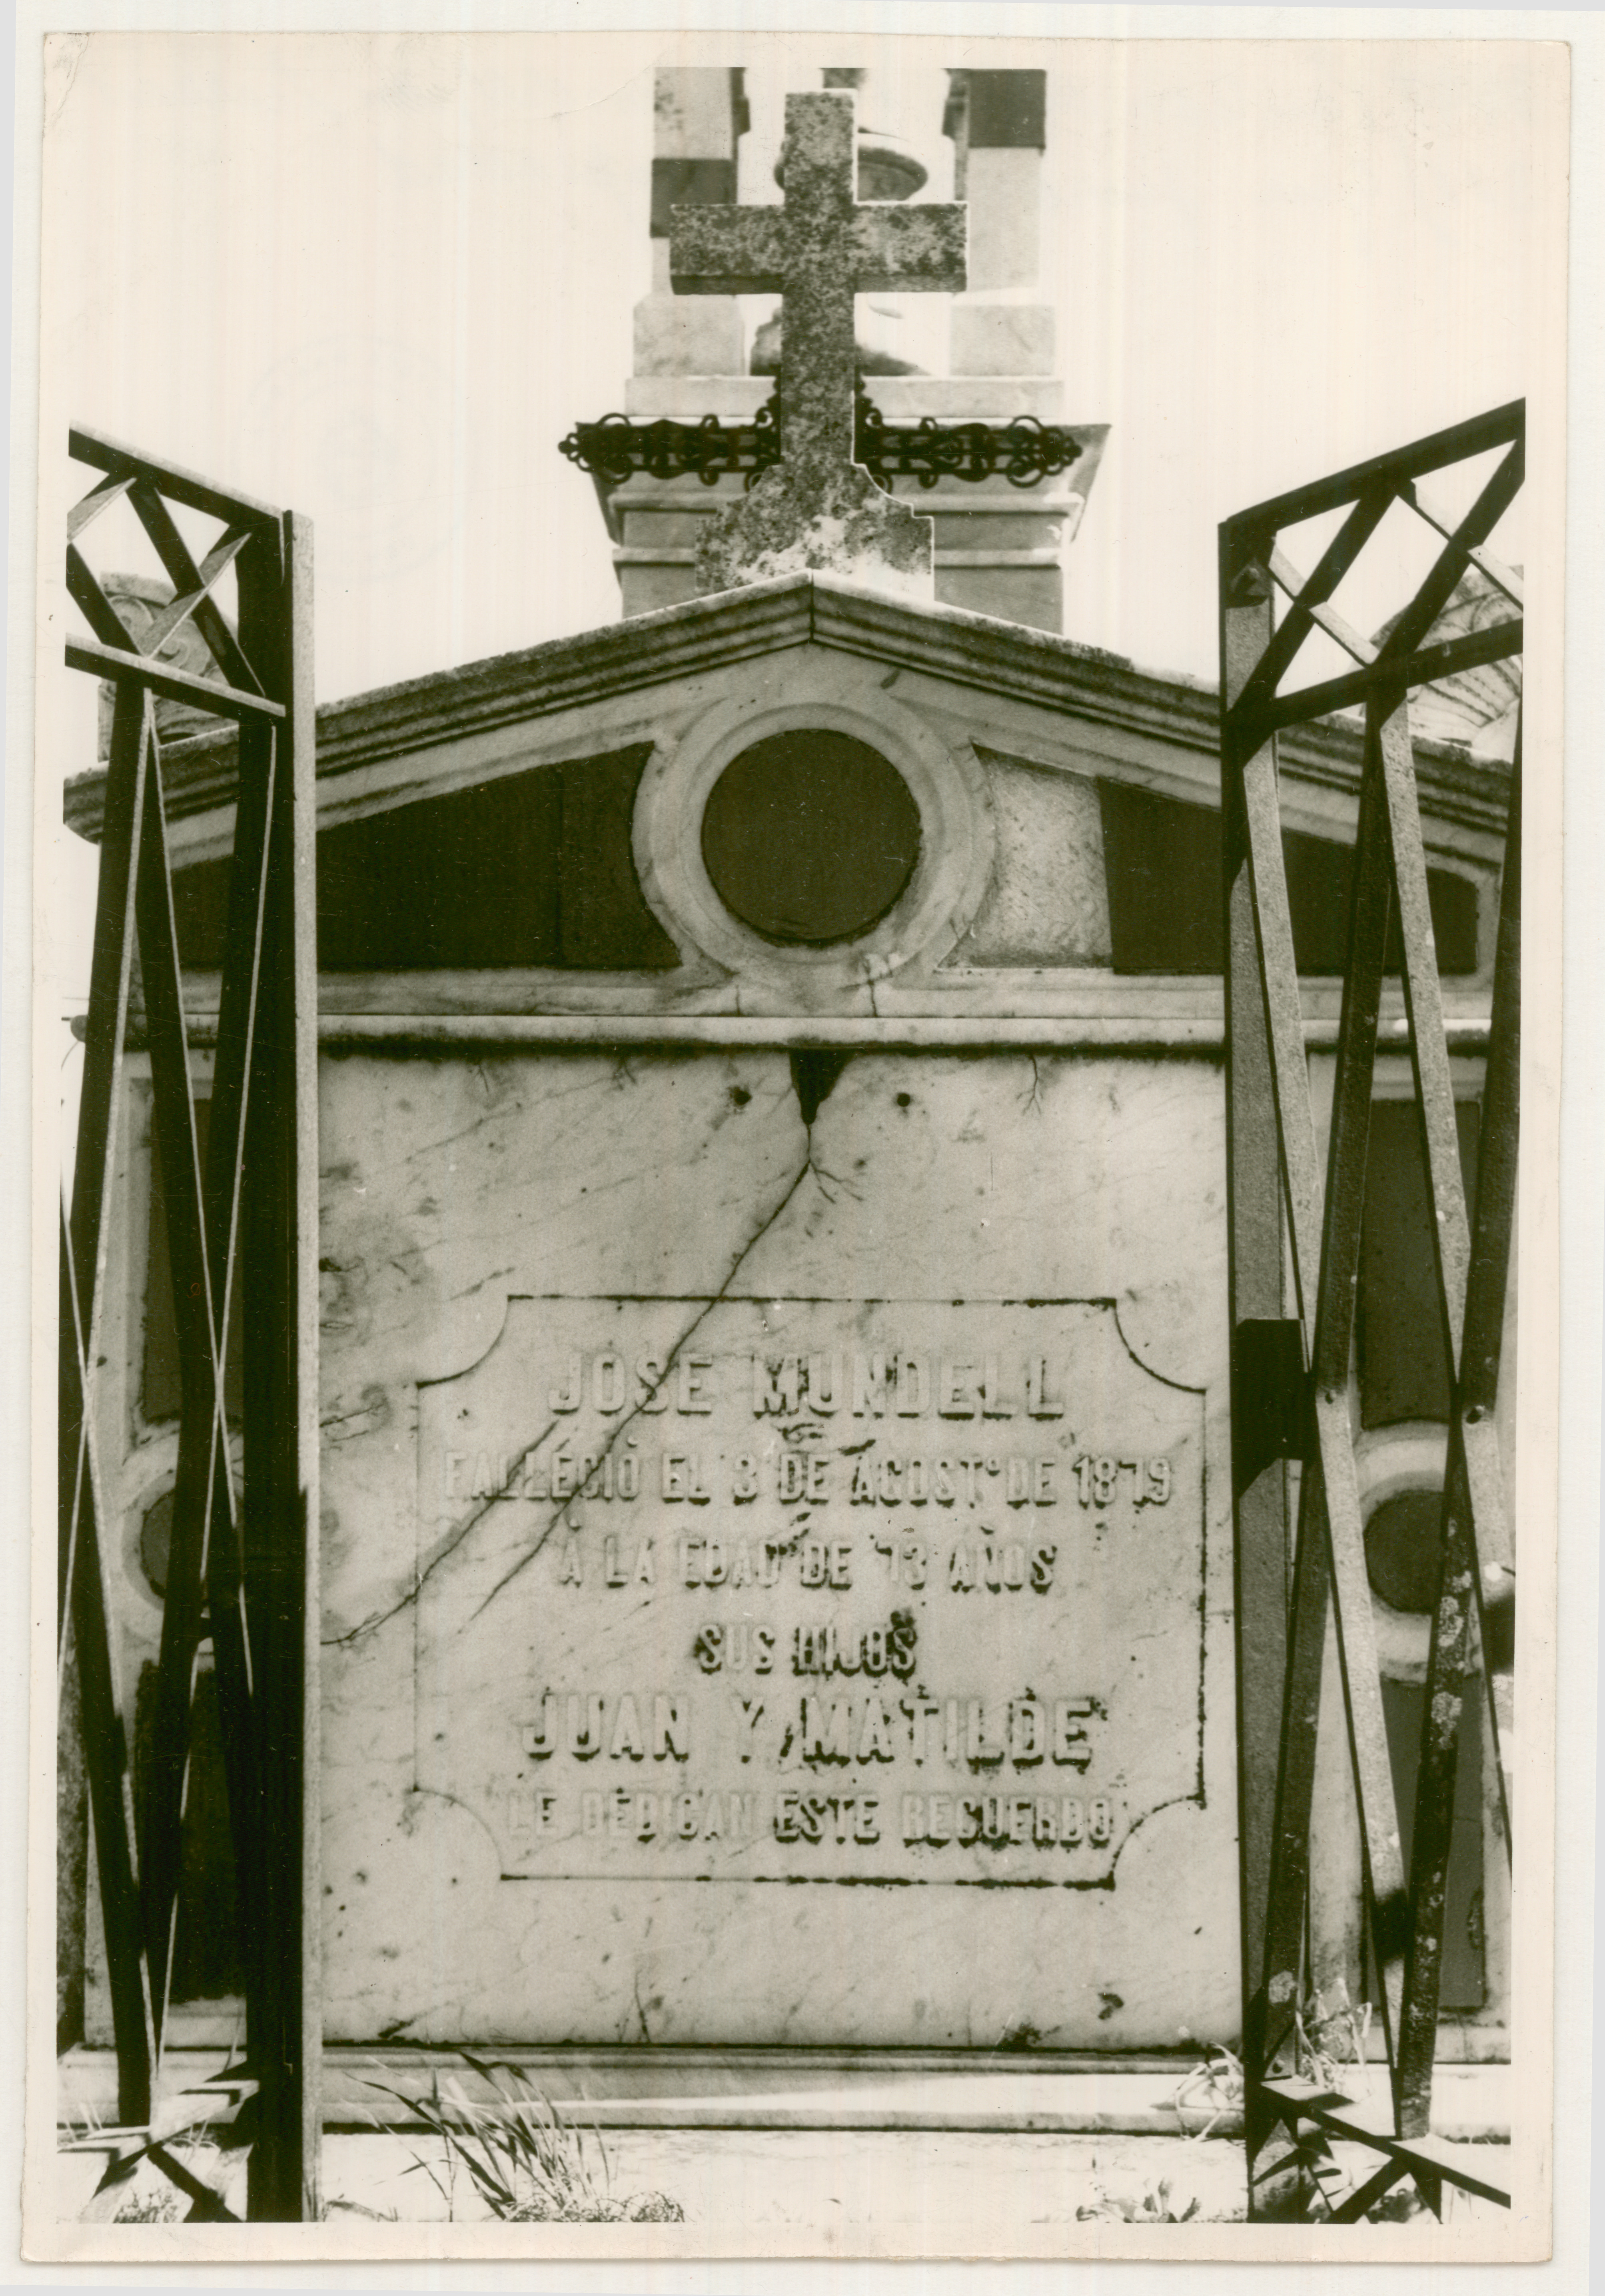 JOSE MUNDELL
FALLECIÓ EL 3 DE AGOSTº DE 1879
Á LA EDAD DE 73 AÑOS
SUS HIJOS
JUAN Y MATILDE
LE DEDICAN ESTE RECUERDO